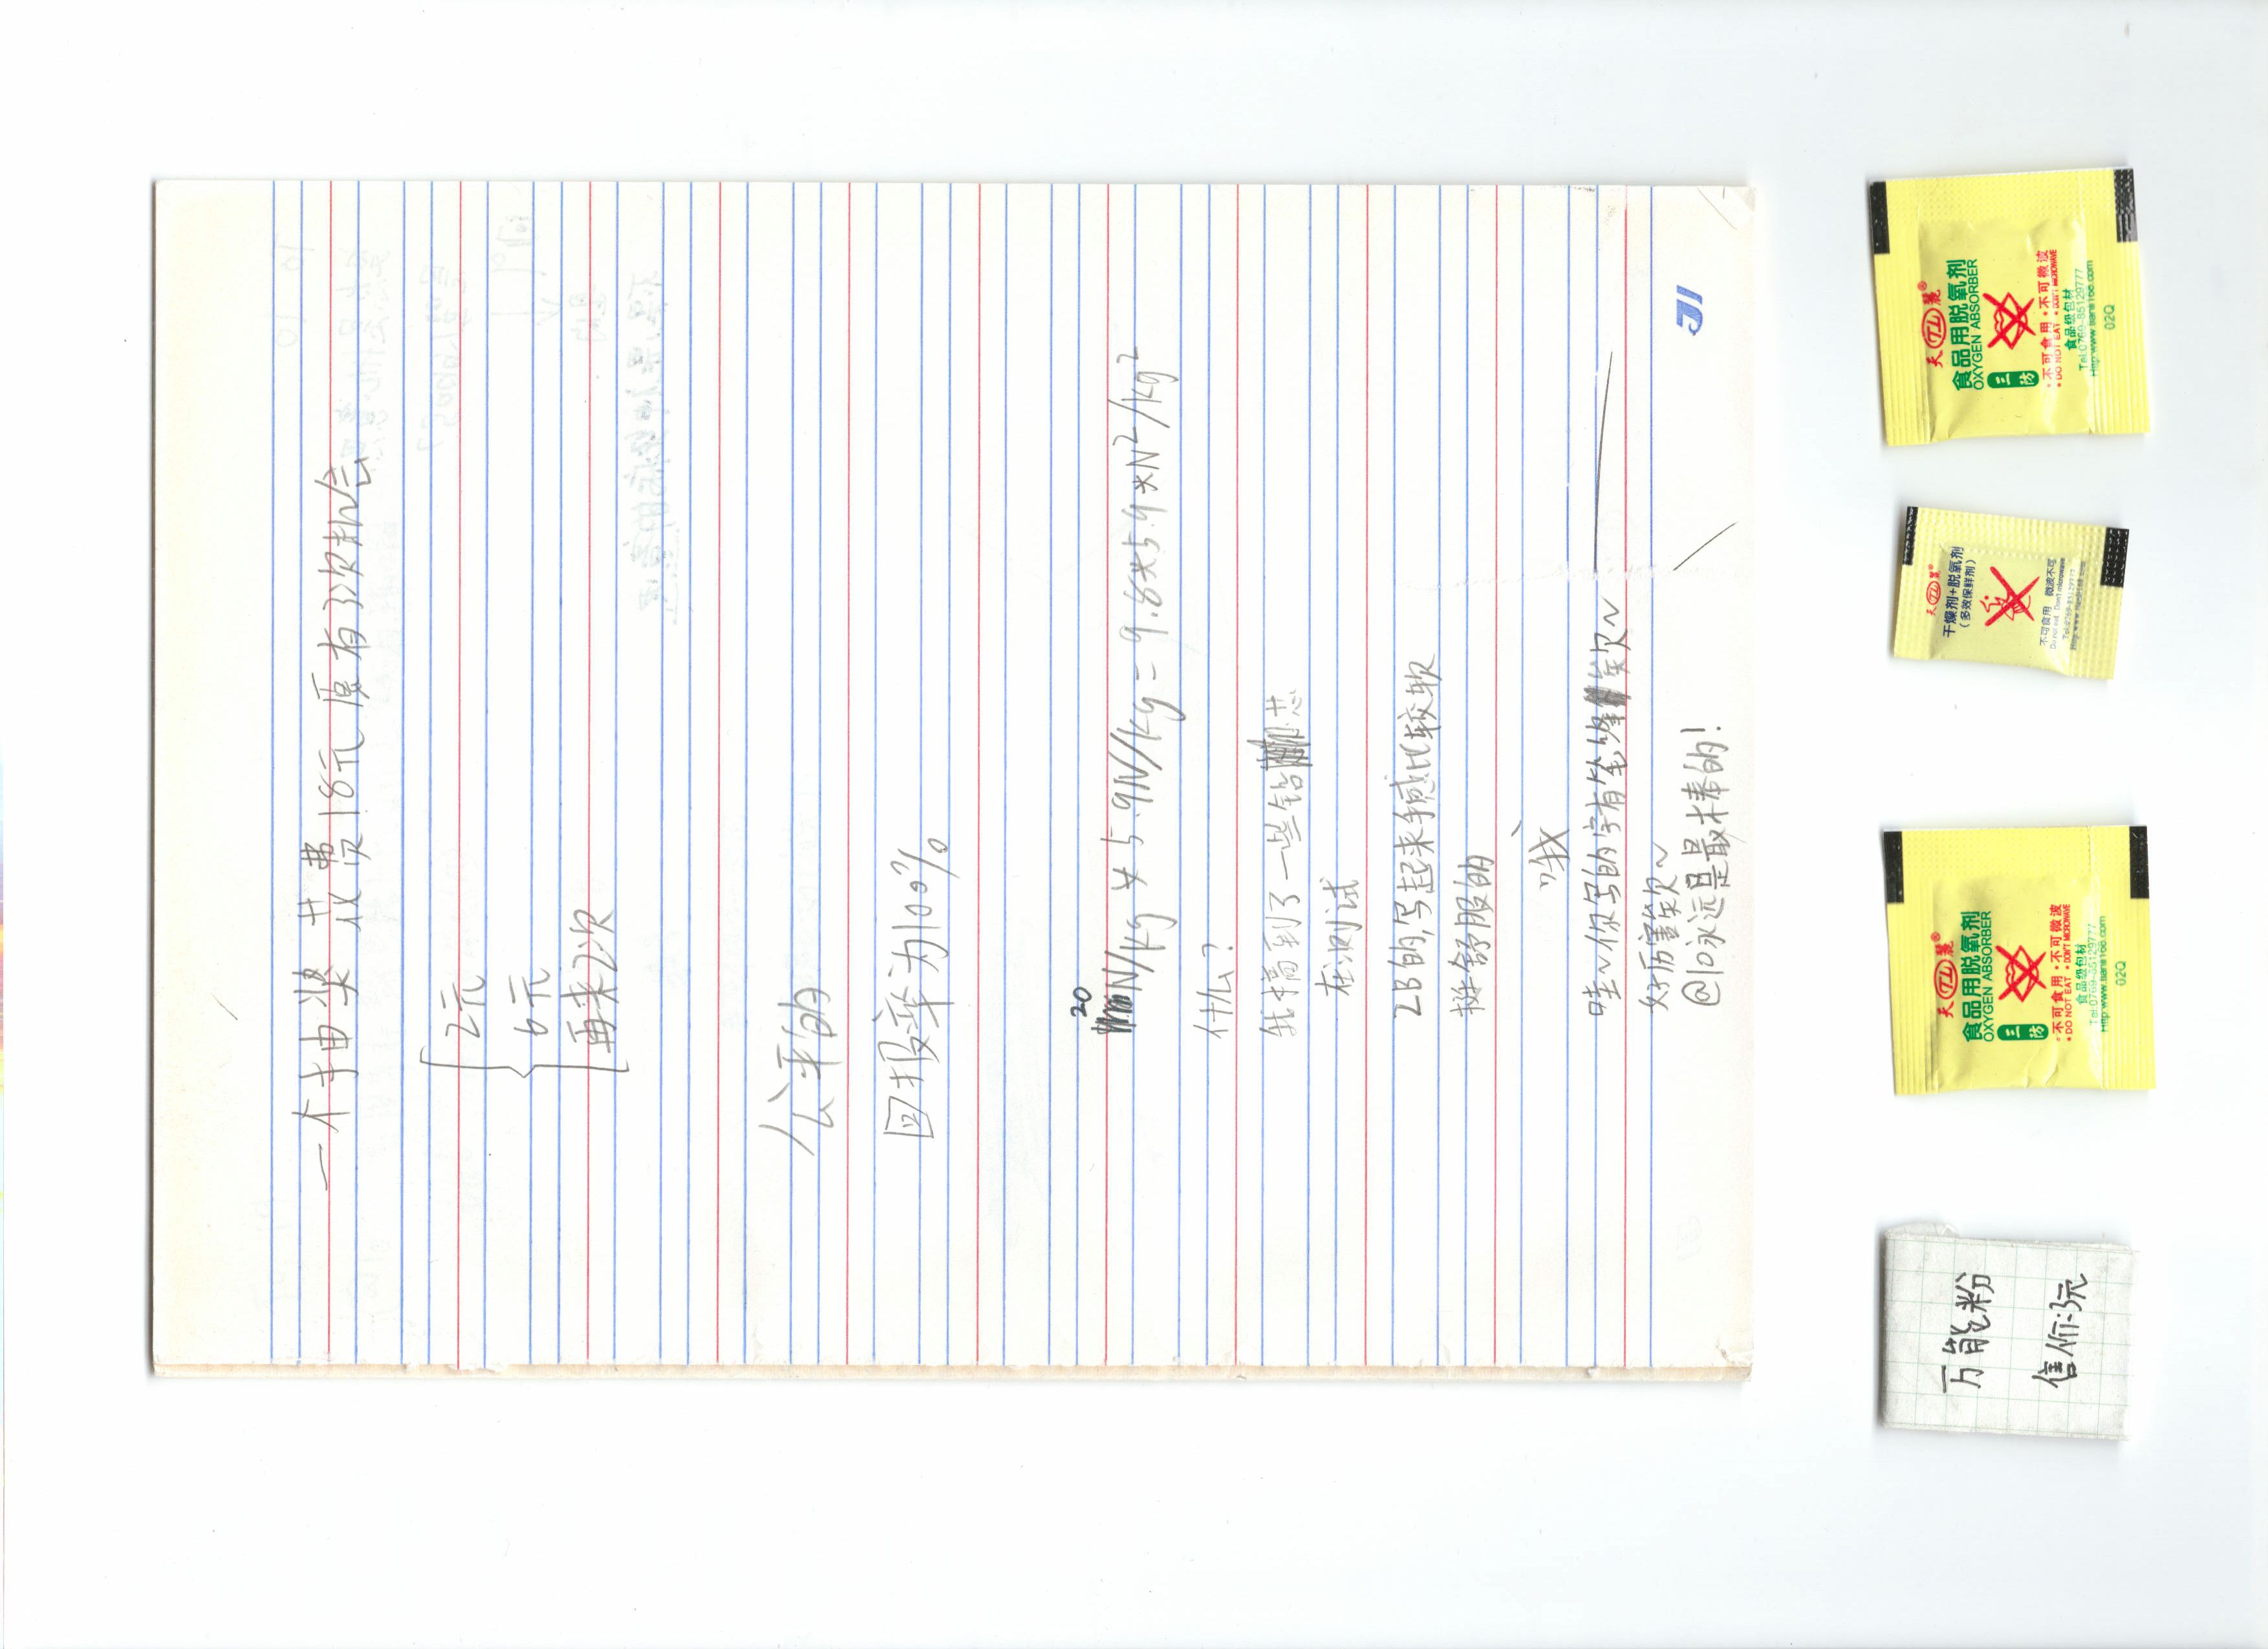 一个抽奖 花费18元 原有3次机会
2元
6元
再来2次
公平的
回报率为100%
20
N/kg × 5.9N/kg = 9.8×5.9×N²/kg²
什么?
我搞到了一些铅芯
在测试
2B的,写起来手感比较软
挺舒服的
哇~你写的字有笔锋欸~
好厉害欸~
@10永远是最棒的!
万能粉
信价:3元
天TL麓®
食品用脱氧剂
OXYGEN ABSORBER
三防
•不可食用 •不可微波
•DO NOT EAT •DON'T MICROWAVE
食品级包材
Tel:0769-85129777
Http:www.tianli168.com
02Q
天TL麓®
干燥剂+脱氧剂
(多效保鲜剂)
不可食用 微波不可
Do not eat Don't microwave
Tel:0769-85129777
天TL麓®
食品用脱氧剂
OXYGEN ABSORBER
三防
•不可食用 •不可微波
•DO NOT EAT •DON'T MICROWAVE
食品级包材
Tel:0769-85129777
Http:www.tianli168.com
02Q